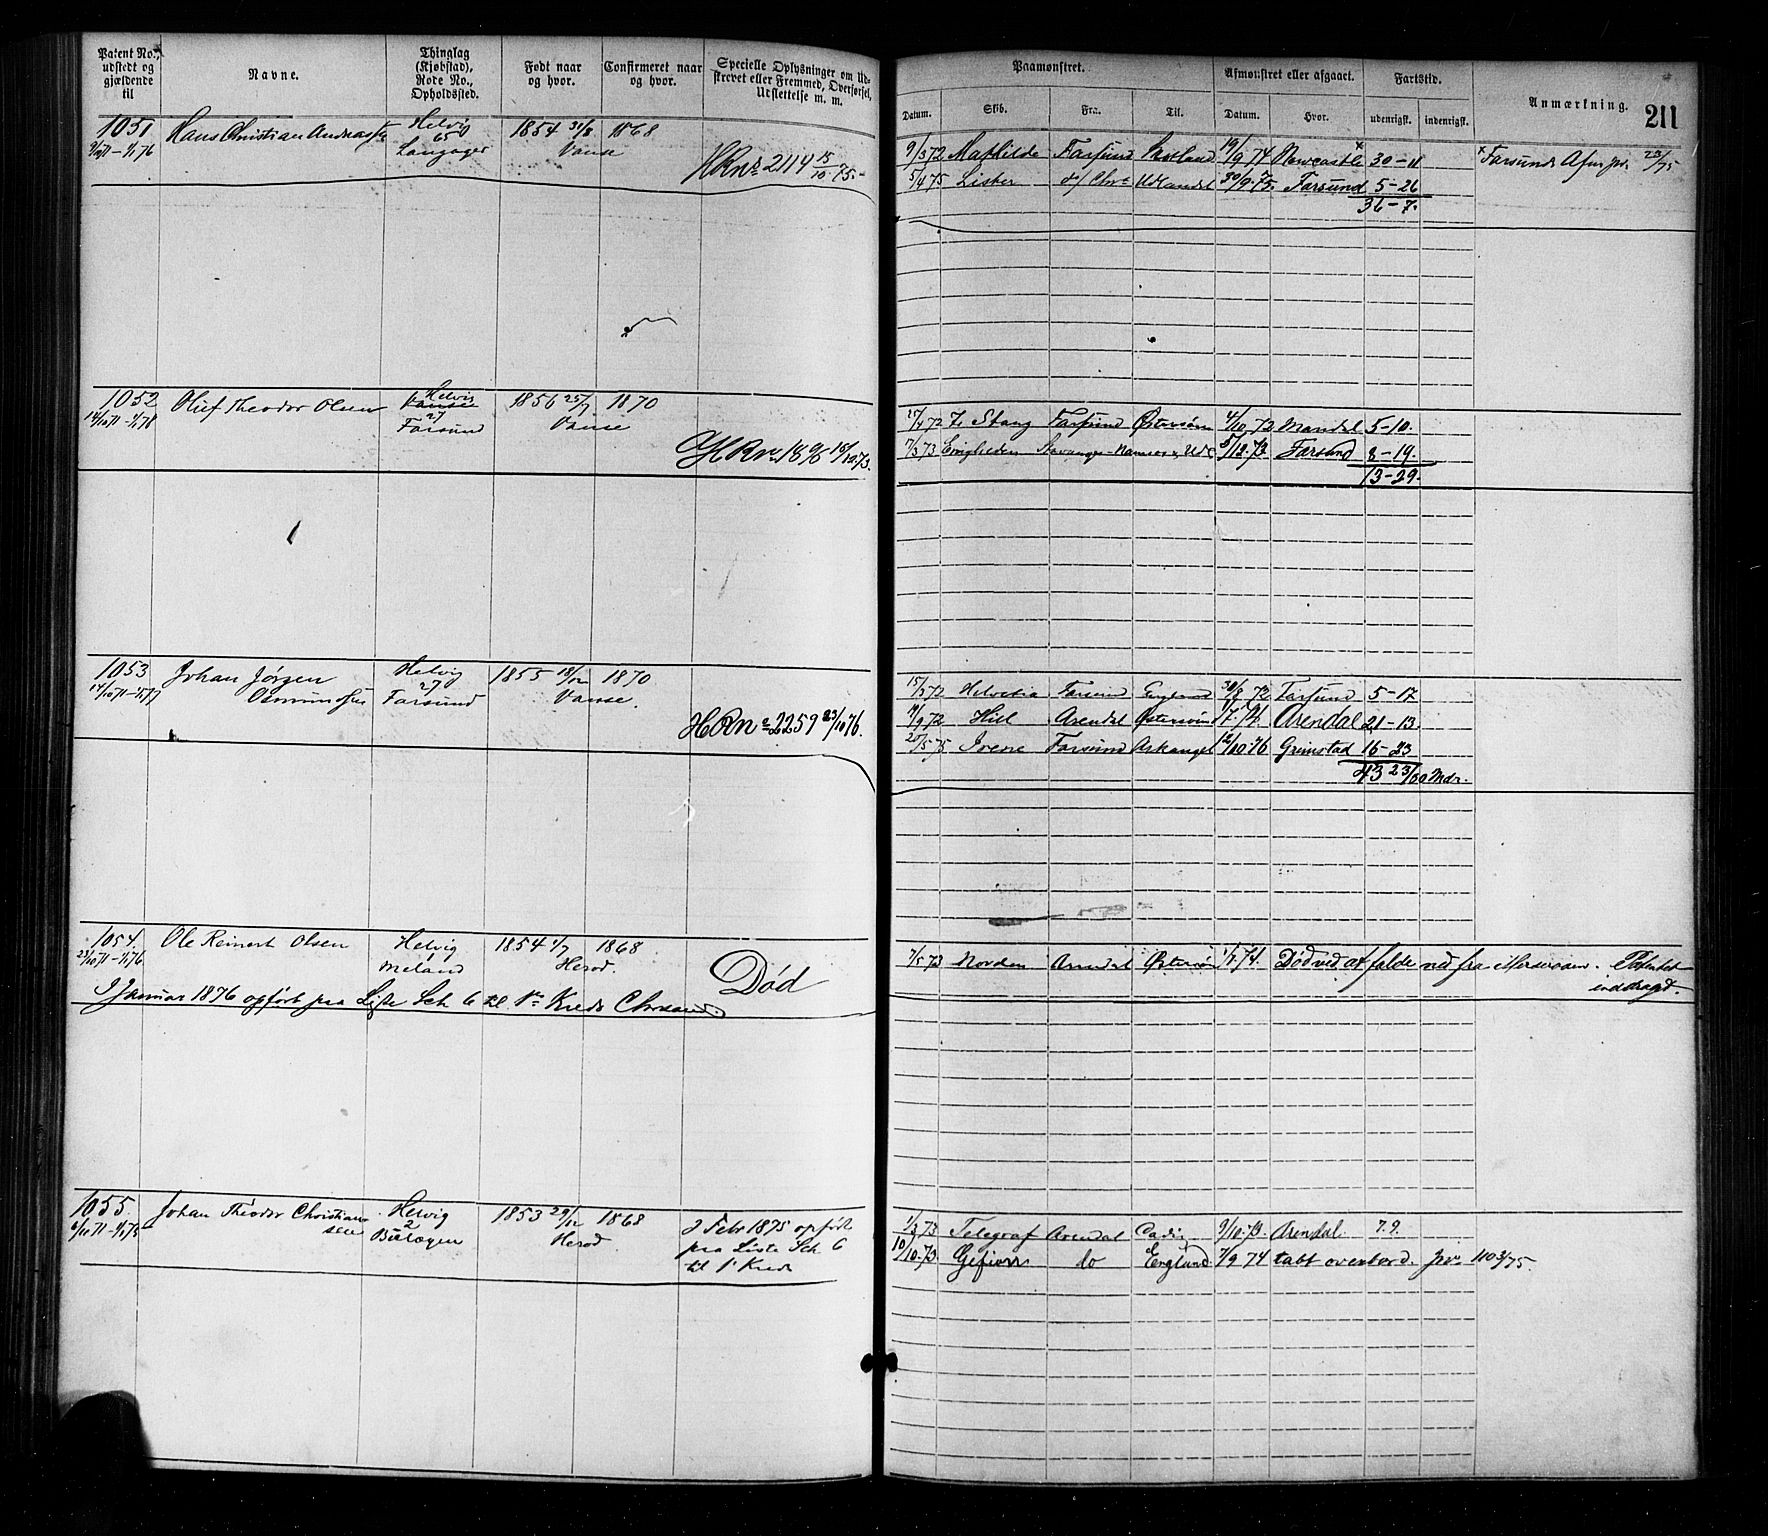 Patent No., udstedt og gjældende til
Navne.
Thinglag (Kjøbstad), Rode No., Opholdssted.
Født naar og hvor.
Confirmeret naar og hvor.
Specielle Oplysninger om Udskrevet eller Fremmed, Overførsel, Udslettelse m. m.
Paamønstret.
Afmønstret eller afgaaet.
Fartstid.
Anmærkning.
211
Datum. Skib. Fra. Til. Datum. Hvor. udenrigsk. indenrigsk.
1051 Hans Christian Andreas Helvig 1854 31/8 1868
650
Langager Vanse
HR No 2114 15/10 75.
9/3 72 Mathilde Farsund 19/9 74 Newcastle × 30-11 × Farsunds
5/4 75 Lister Udlandet 30/9 75. Farsund 5-26
36-7.
1052 Oluf Theodor Olsen Helvig 1856 25/7 1870
14/10 71 - 1/1 78 27
Farsund Vanse
HR No 1896 18/12 73.
27/4 72 Fr. Stang Farsund Østersøen 4/10 72 Mandal 5-10.
7/3 73 Enigheden Stavanger 5/12 73 Farsund 8-19.
13-29.
1053 Johan Jørgen Helvig 1855 18/12 1870
14/10 71 - 1/1 77 Osmundsen 27
Farsund Vanse.
HR No 2259 23/10 76.
15/3 72 Helvetia Farsund England 30/8 72 Farsund 5-17
4/9 72 Hill Arendal Østersøen Arendal 21-13.
20/5 75 Irene Farsund Arkangel 12/10 76 Grimstad 16-23
43 23/30 Mdr.
1054. Ole Reinert Olsen Helvig 1854 1/7 1868
Meland Herod.
Død
I Januar 1876 opført paa Liste Sch. 6 til 1ste Kreds
7/5 73 Norden Arendal Østersøen Død ved at falde ned fra Mersraaen. Patentet
inddraget.
1055. Johan Theodor Christian- Helvig 1853 29/12 1868
6/11 71 - 1/1 75 sen 2
Herod
I Febr 1875 opført
paa Liste Sch. 6
til 1' Kreds
1/3 73 Telegraf Arendal Cadix 9/10 73. Arendal. 7.9.
10/10 73 Gefion do England 7/9 74 tabt overbord. 1103/75.